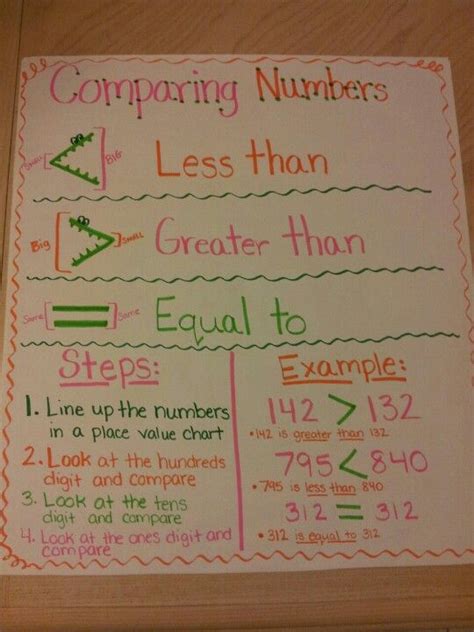 Comparing Numbers
Small < BIG Less than
Big > Small Greater than
Same = Same Equal to
Steps:
1. Line up the numbers
in a place value chart
2. Look at the hundreds
digit and compare
3. Look at the tens
digit and compare
4. Look at the ones digit and
compare
Example:
142 > 132
•142 is greater than 132
795 < 840
•795 is less than 840
312 = 312
•312 is equal to 312